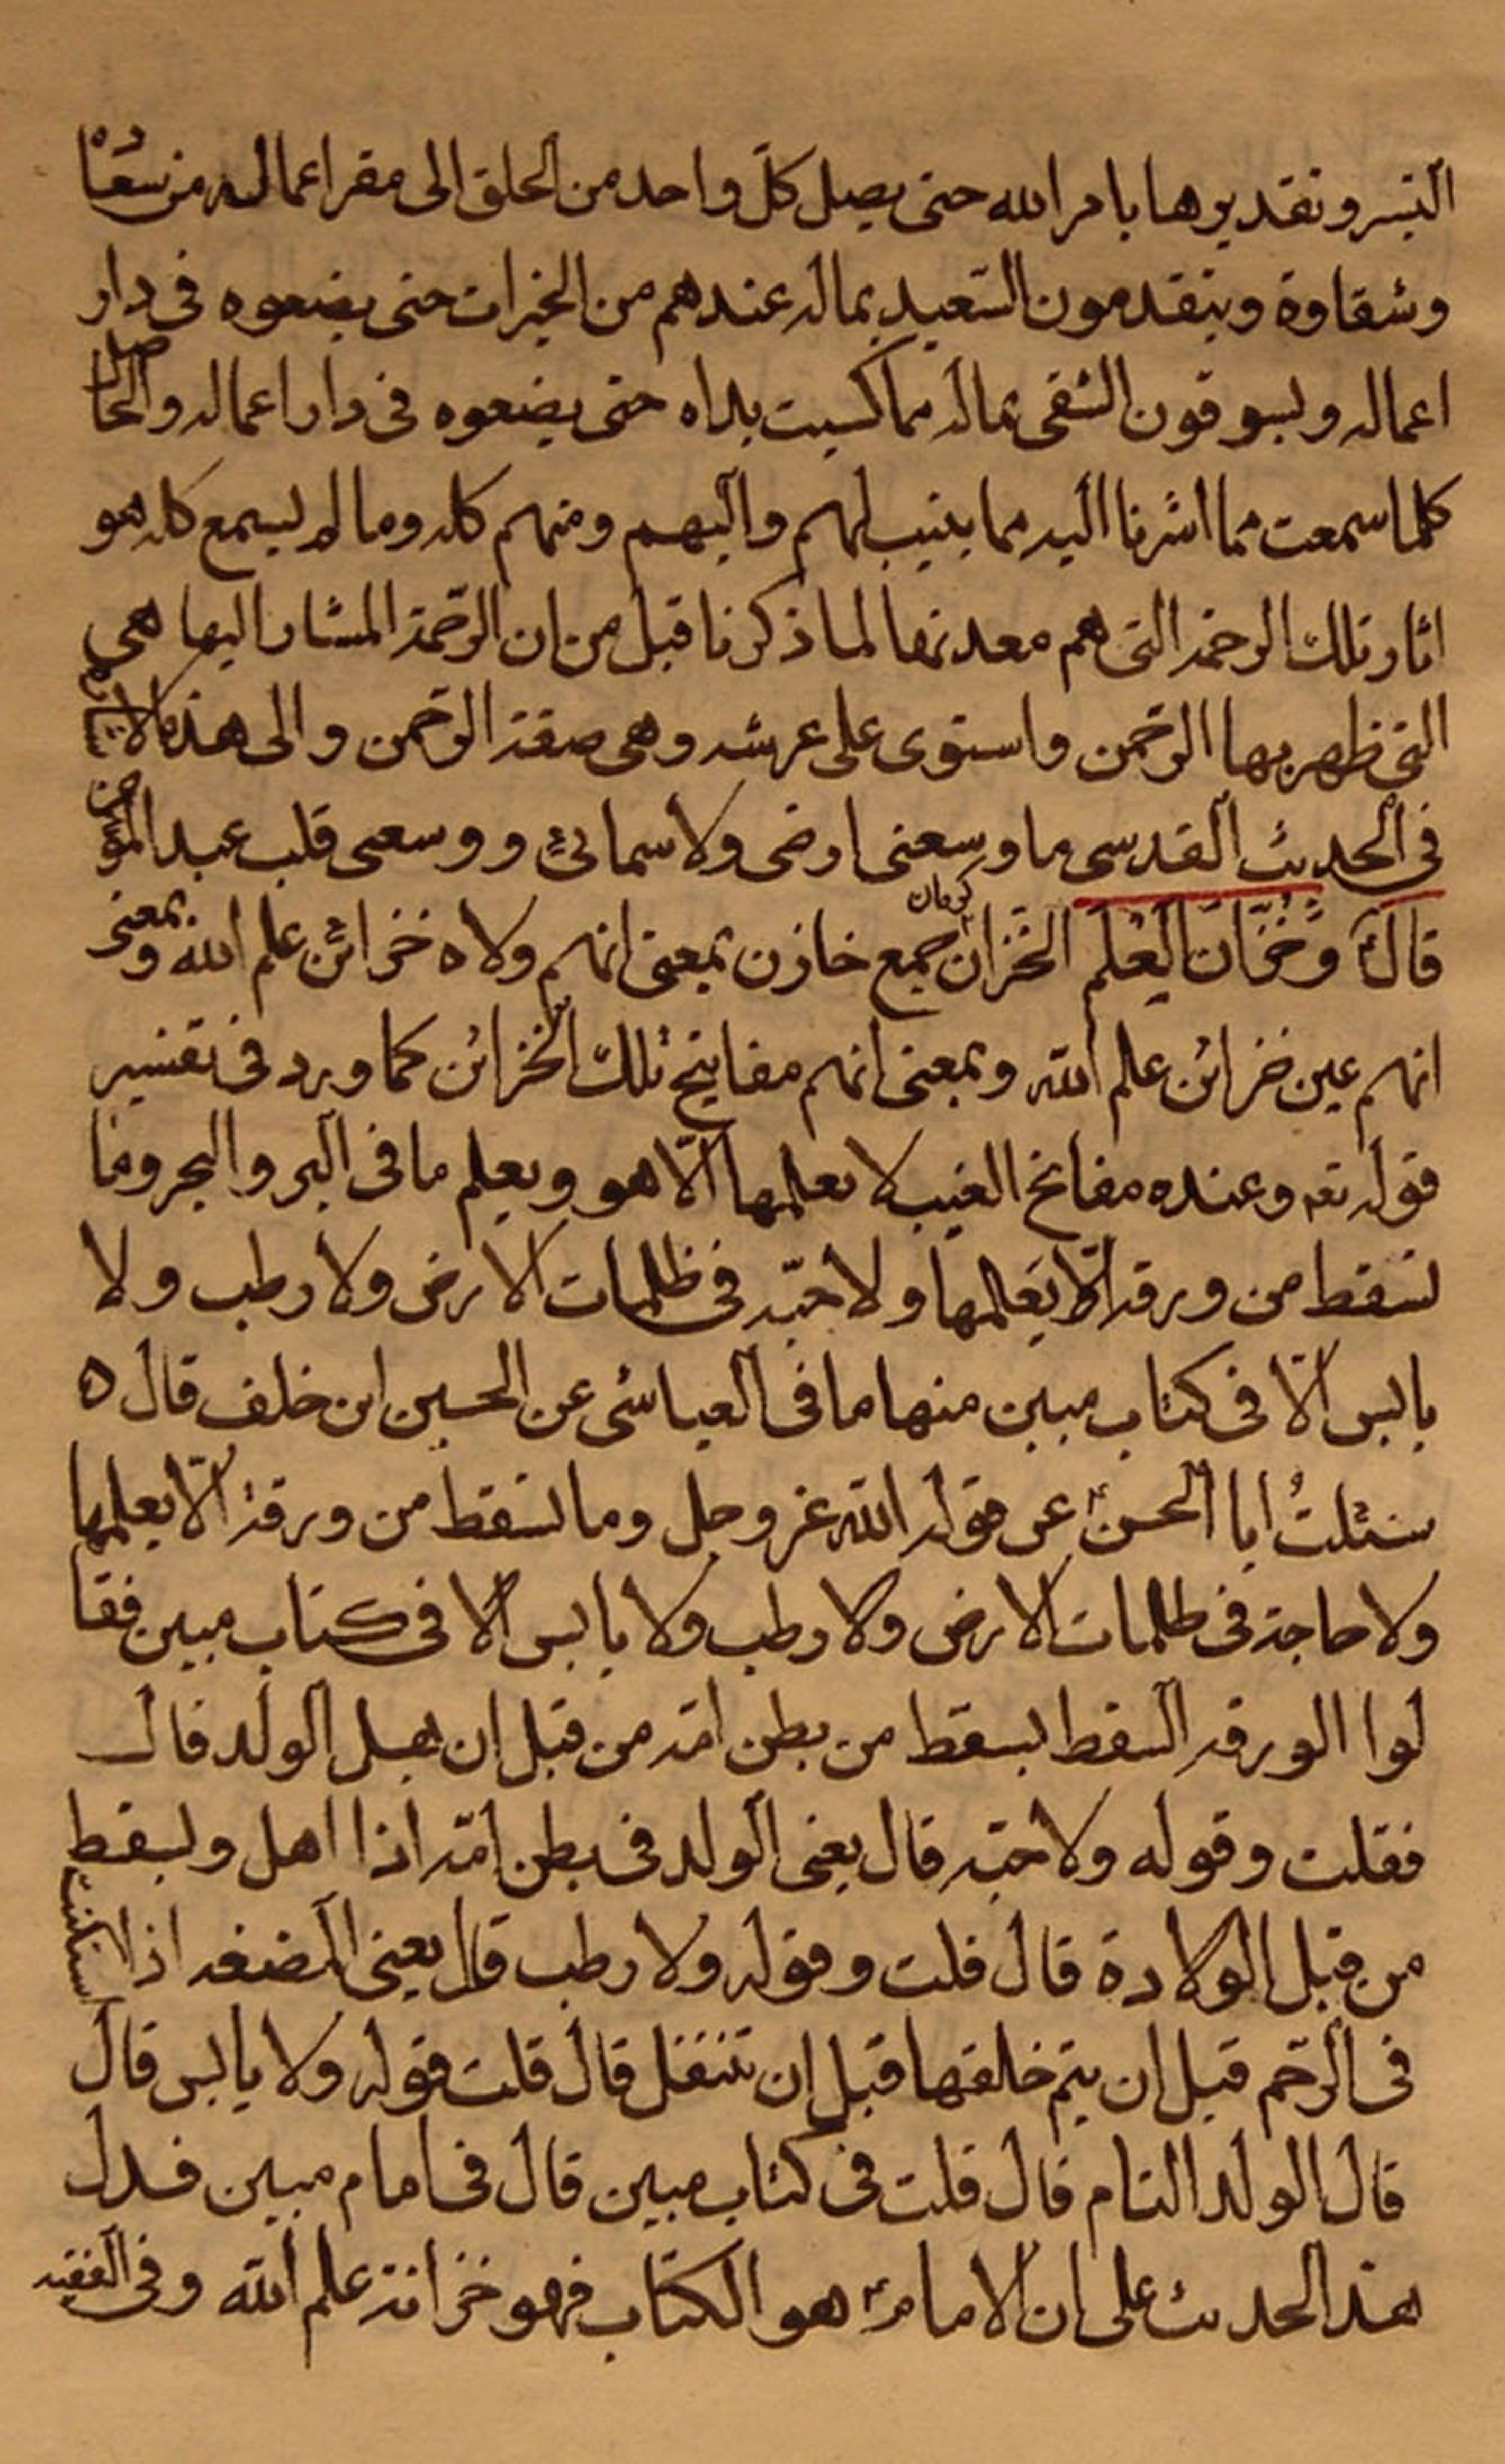 السر وتقديرها بامر الله حتى يصل كل واحد من الخلق الى مقر اعماله من سعادة
وشقاوة ويتقدمون السعيد بماله عندهم من الخيرات حتى يضعوه فى دار
اعماله ويسوقون الشقى بماله مما كسبت يداه حتى يضعوه فى دار اعماله والحاصل
كلما سمعت مما اشرنا اليه مما ينسب لهم واليهم ومنهم كله وما لم يسمع كله هو
اثار تلك الرحمة التى هم معدنها لما ذكرنا قبل من ان الرحمة المشار اليها هى
التى ظهر بها الرحمن واستوى على عرشه وهى صفة الرحمن والى هذه الاشارة
فى الحديث القدسى ما وسعنى ارضى ولا سمائى ووسعنى قلب عبد المؤمن
قال ؑ وَخُزّانَ العِلم الخُزّان كرمان جمع خازن بمعنى انهم ولاه خزائن علم الله وبمعنى
انهم عين خزائن علم الله وبمعنى انهم مفاتيح تلك الخزائن كما ورد فى تفسير
قوله تعه وعنده مفاتح الغيب لا يعلمها الّا هو ويعلم ما فى البر والبحر وما
تسقط من ورقه الّا يعلمها ولا حبّه فى ظلمات الارض ولا رطب ولا
يابس الّا فى كتاب مبين منها ما فى العياشى عن الحسين ابن خلف قال ه
سئلتُ ابا الحسن ؑ عن قوله الله عز وجل وما تسقط من ورقة الّا يعلمها
ولا حاجة فى ظلمات الارض ولا رطب ولا يابس الا فى كتاب مبين فقا
لوا الورقه السقط يسقط من بطن امّه من قبل ان يهل الولد قال
فقلت وقوله ولا حبّه قال يعنى الولد فى بطن امّه اذا اهل ويسقط
من قبل الولادة قال قلت وقوله ولا رطب قال يعنى المضغه اذا استكنت
فى الرحم قبل ان يتم خلقها قبل ان تنتقل قال قلت قوله ولا يابس قال
قال الولد التام قال قلت فى كتاب مبين قال فى امام مبين فدل
هذا الحديث على ان الامام ؑ هو الكتاب فهو خزانة علم الله وفى الفقيه